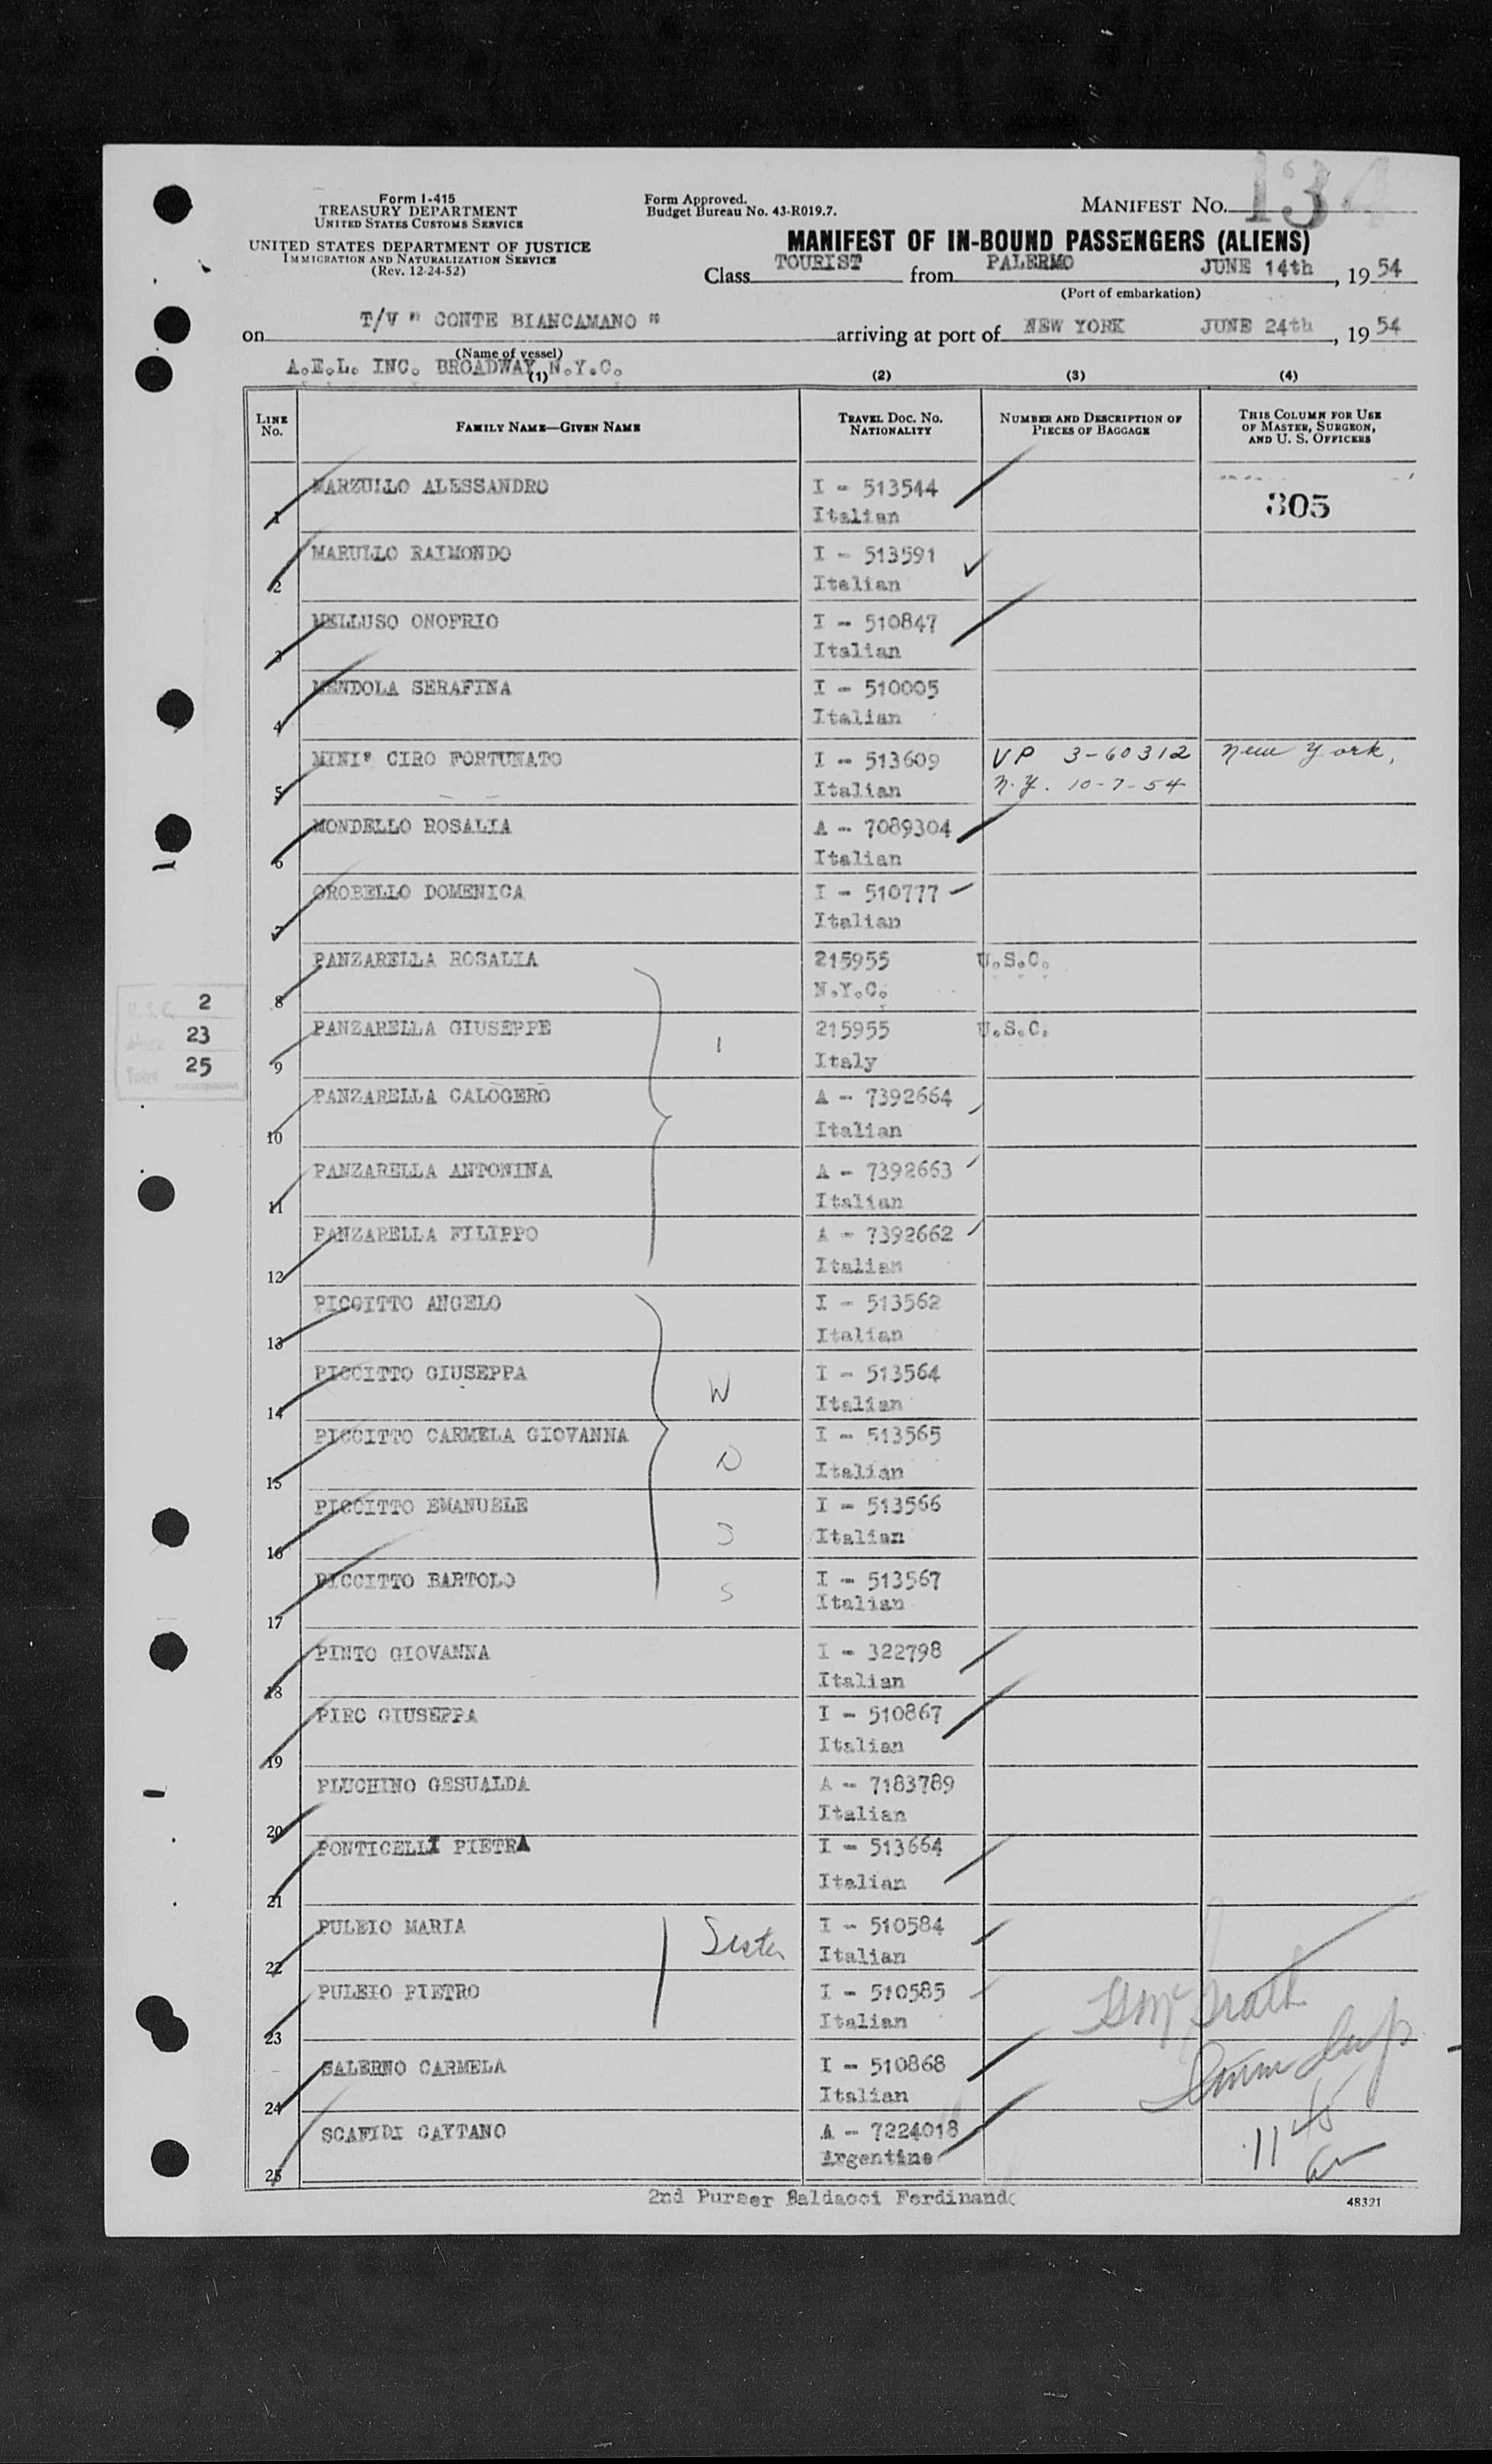 134
Form I-415
TREASURY DEPARTMENT
UNITED STATES CUSTOMS SERVICE
UNITED STATES DEPARTMENT OF JUSTICE
IMMIGRATION AND NATURALIZATION SERVICE
(Rev. 12-24-52)
Form Approved.
Budget Bureau No. 43-R019.7.
MANIFEST NO.
MANIFEST OF IN-BOUND PASSENGERS (ALIENS)
Class TOURIST from PALERMO JUNE 14th, 19 54
(Port of embarkation)
on T/V " CONTE BIANCAMANO " arriving at port of NEW YORK JUNE 24th, 19 54
(Name of vessel)
A.E.L. INC. BROADWAY N.Y.C.
(1) (2) (3) (4)
LINE No. FAMILY NAME—GIVEN NAME TRAVEL DOC. NO. NATIONALITY NUMBER AND DESCRIPTION OF PIECES OF BAGGAGE THIS COLUMN FOR USE OF MASTER, SURGEON, AND U. S. OFFICERS
1 MARZULLO ALESSANDRO I - 513544 305
Italian
2 MARULLO RAIMONDO I - 513591
Italian
3 MELLUSO ONOFRIO I - 510847
Italian
4 MENDOLA SERAFINA I - 510005
Italian
5 MINI' CIRO FORTUNATO I - 513609 VP 3-60312 New York,
Italian N.Y. 10-7-54
6 MONDELLO ROSALIA A - 7089304
Italian
7 OROBELLO DOMENICA I - 510777
Italian
8 PANZARELLA ROSALIA 215955 U.S.C.
N.Y.C.
U.S.C. 2
23
25
9 PANZARELLA GIUSEPPE 1 215955 U.S.C.
Italy
10 PANZARELLA CALOGERO A - 7392664
Italian
11 PANZARELLA ANTONINA A - 7392663
Italian
12 PANZARELLA FILIPPO A - 7392662
Italian
13 PICCITTO ANGELO I - 513562
Italian
14 PICCITTO GIUSEPPA W I - 513564
Italian
15 PICCITTO CARMELA GIOVANNA D I - 513565
Italian
16 PICCITTO EMANUELE S I - 513566
Italian
17 PICCITTO BARTOLO S I - 513567
Italian
18 PINTO GIOVANNA I - 322798
Italian
19 PIRO GIUSEPPA I - 510867
Italian
20 PLUCHINO GESUALDA A - 7183789
Italian
21 PONTICELLI PIETRA I - 513664
Italian
22 PULEIO MARIA Sister I - 510584
Italian
23 PULEIO PIETRO I - 510585
Italian
24 SALERNO CARMELA I - 510868
Italian
25 SCAFIDI GAYTANO A - 7224018
Argentine
11 45
am
2nd Purser Baldacci Ferdinando
48321